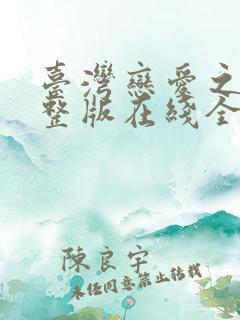 臺灣戀愛之
整版在綫全
陳良宇
未经同意禁止转载